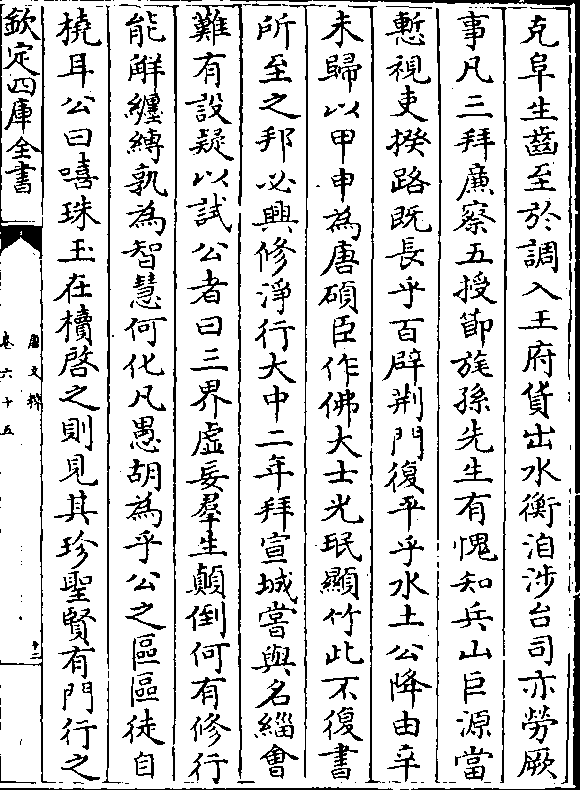 克阜生齒至於調入王府貨出水衡洎涉台司亦勞厥
事凡三拜廉察五授節旄孫先生有愧知兵山巨源當
慙視吏揆路既長乎百辟荆門復平乎水土公降由辛
未歸以甲申為唐碩臣作佛大士光珉顯竹此不復書
所至之邦必興修淨行大中二年拜宣城嘗與名緇會
難有設疑以試公者曰三界虛妄羣生顛倒何有修行
能解纏縛孰為智慧何化凡愚胡為乎公之區區徒自
撓耳公曰嘻珠玉在櫝啓之則見其珍聖賢有門行之
欽定四庫全書
唐文粹
卷六十五
十二